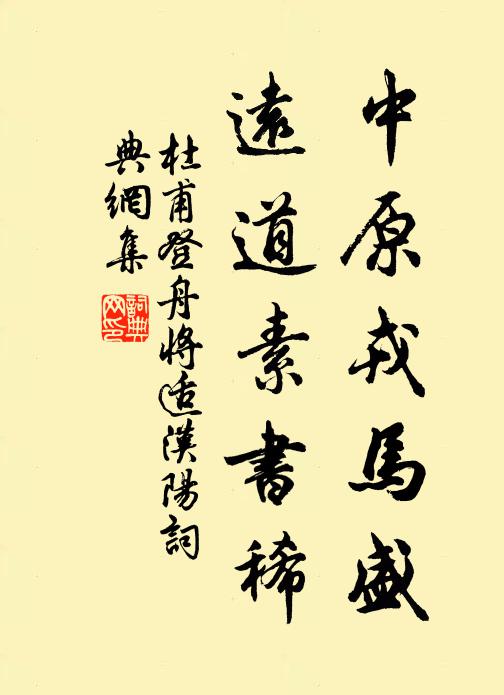 中原戎馬盛
遠道素書稀
杜甫登舟將适漢陽詞
典網集
詞典网印